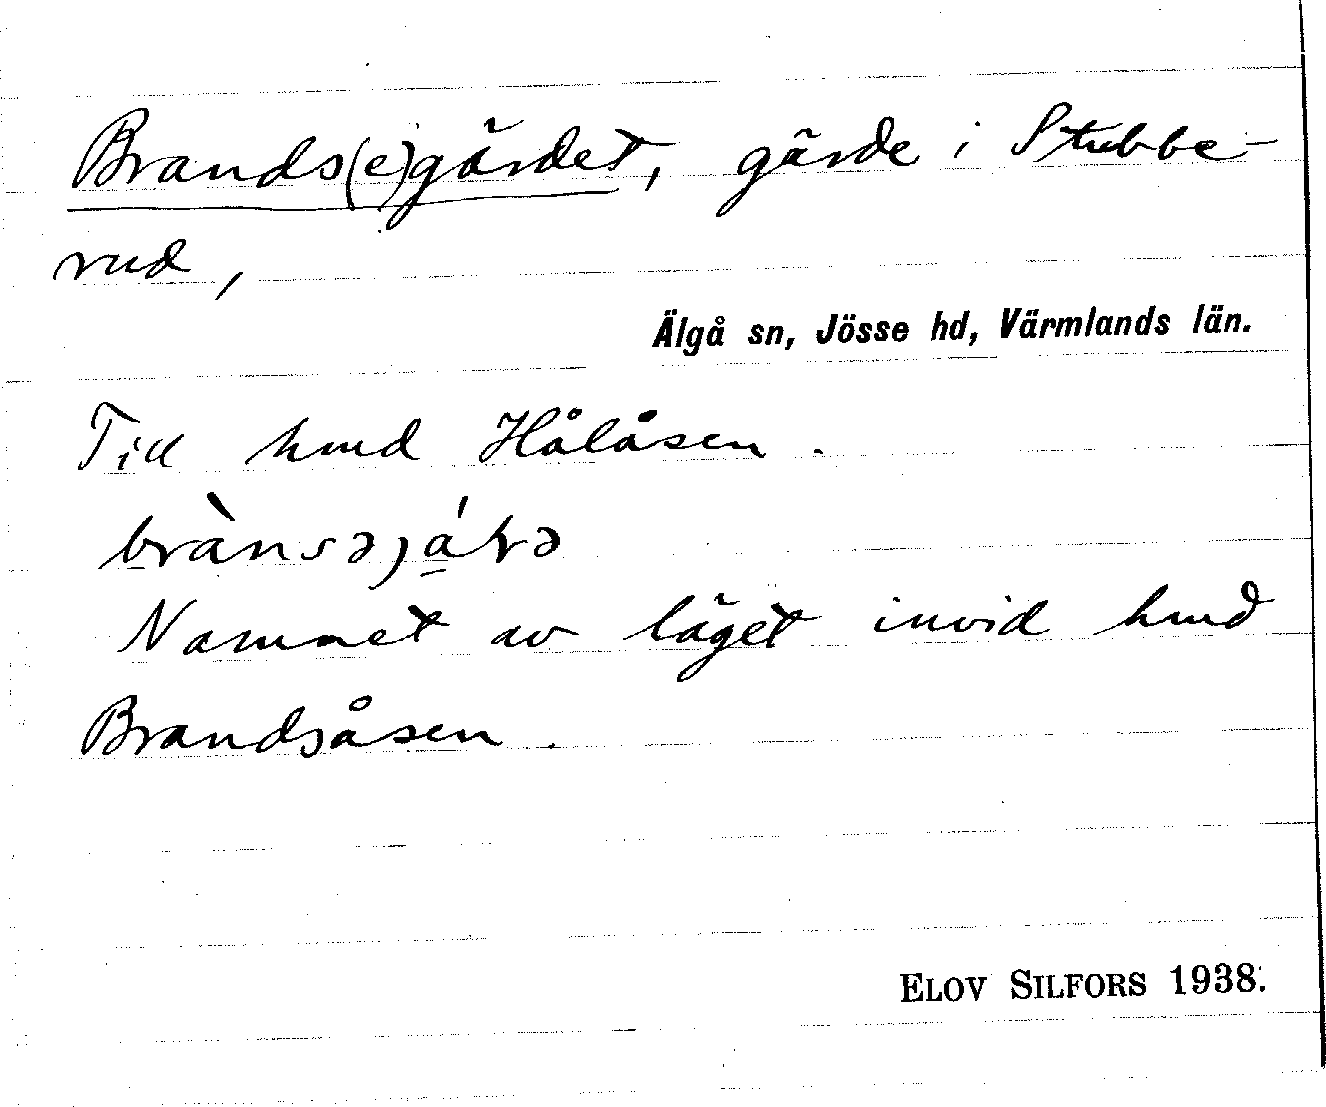 Brands(e)gärdet, gärde i Stubbe-
rud,
Älgå sn, Jösse hd, Värmlands län.
Till hmd Hålåsen.
Namnet av läget invid hmd
Brandsåsen.
ELOV SILFORS 1938.